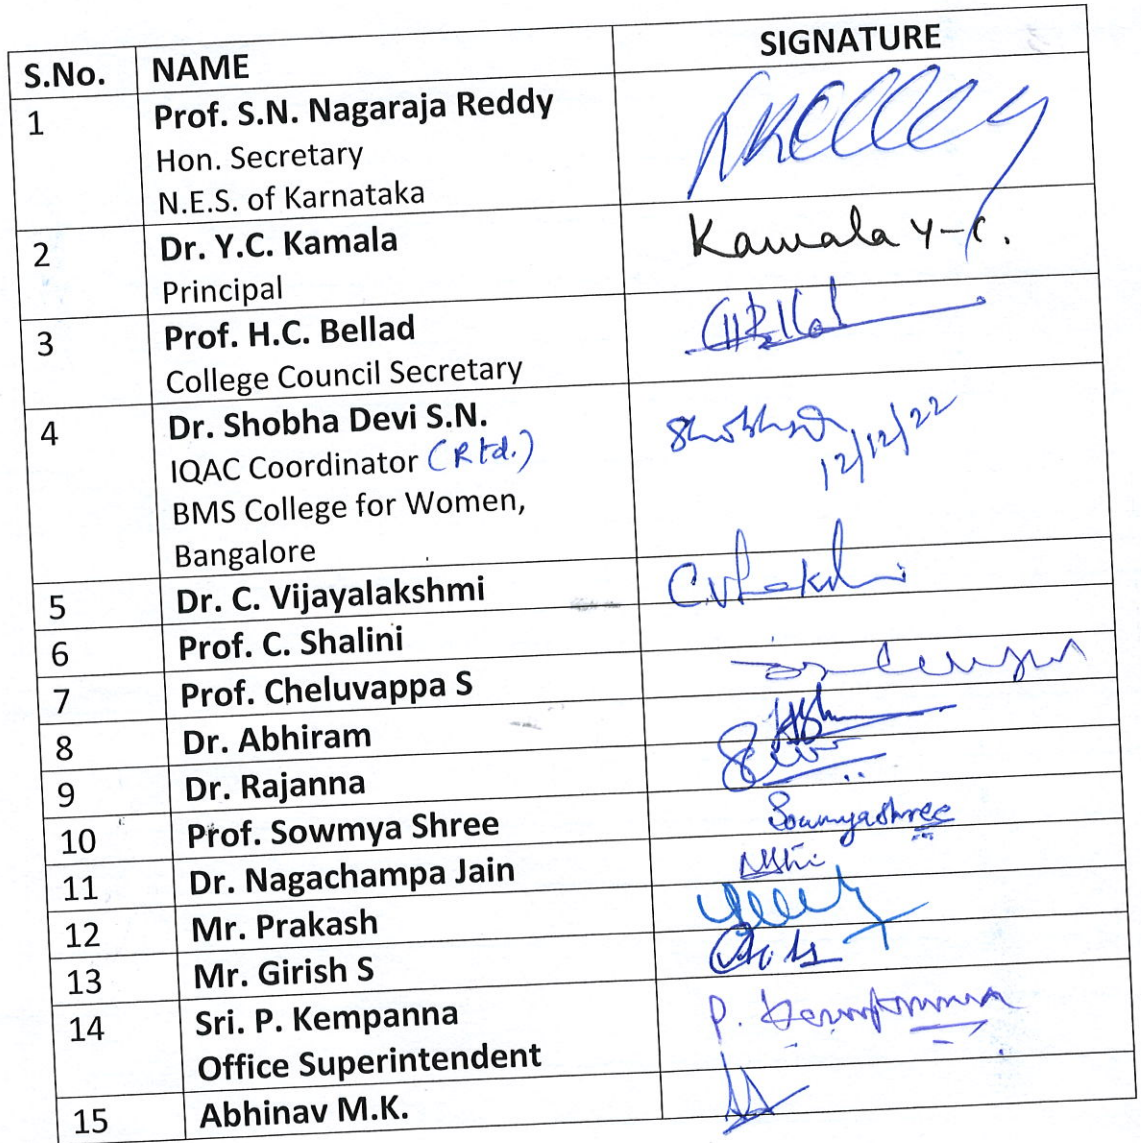 S.No. NAME SIGNATURE
1 Prof. S.N. Nagaraja Reddy
Hon. Secretary
N.E.S. of Karnataka
2 Dr. Y.C. Kamala Kamala Y-C.
Principal
3 Prof. H.C. Bellad
College Council Secretary
4 Dr. Shobha Devi S.N.
IQAC Coordinator (Rtd.) 12/12/22
BMS College for Women,
Bangalore
5 Dr. C. Vijayalakshmi
6 Prof. C. Shalini
7 Prof. Cheluvappa S
8 Dr. Abhiram
9 Dr. Rajanna
10 Prof. Sowmya Shree Sowmyashree
11 Dr. Nagachampa Jain
12 Mr. Prakash
13 Mr. Girish S
14 Sri. P. Kempanna P. Kempanna
Office Superintendent
15 Abhinav M.K.